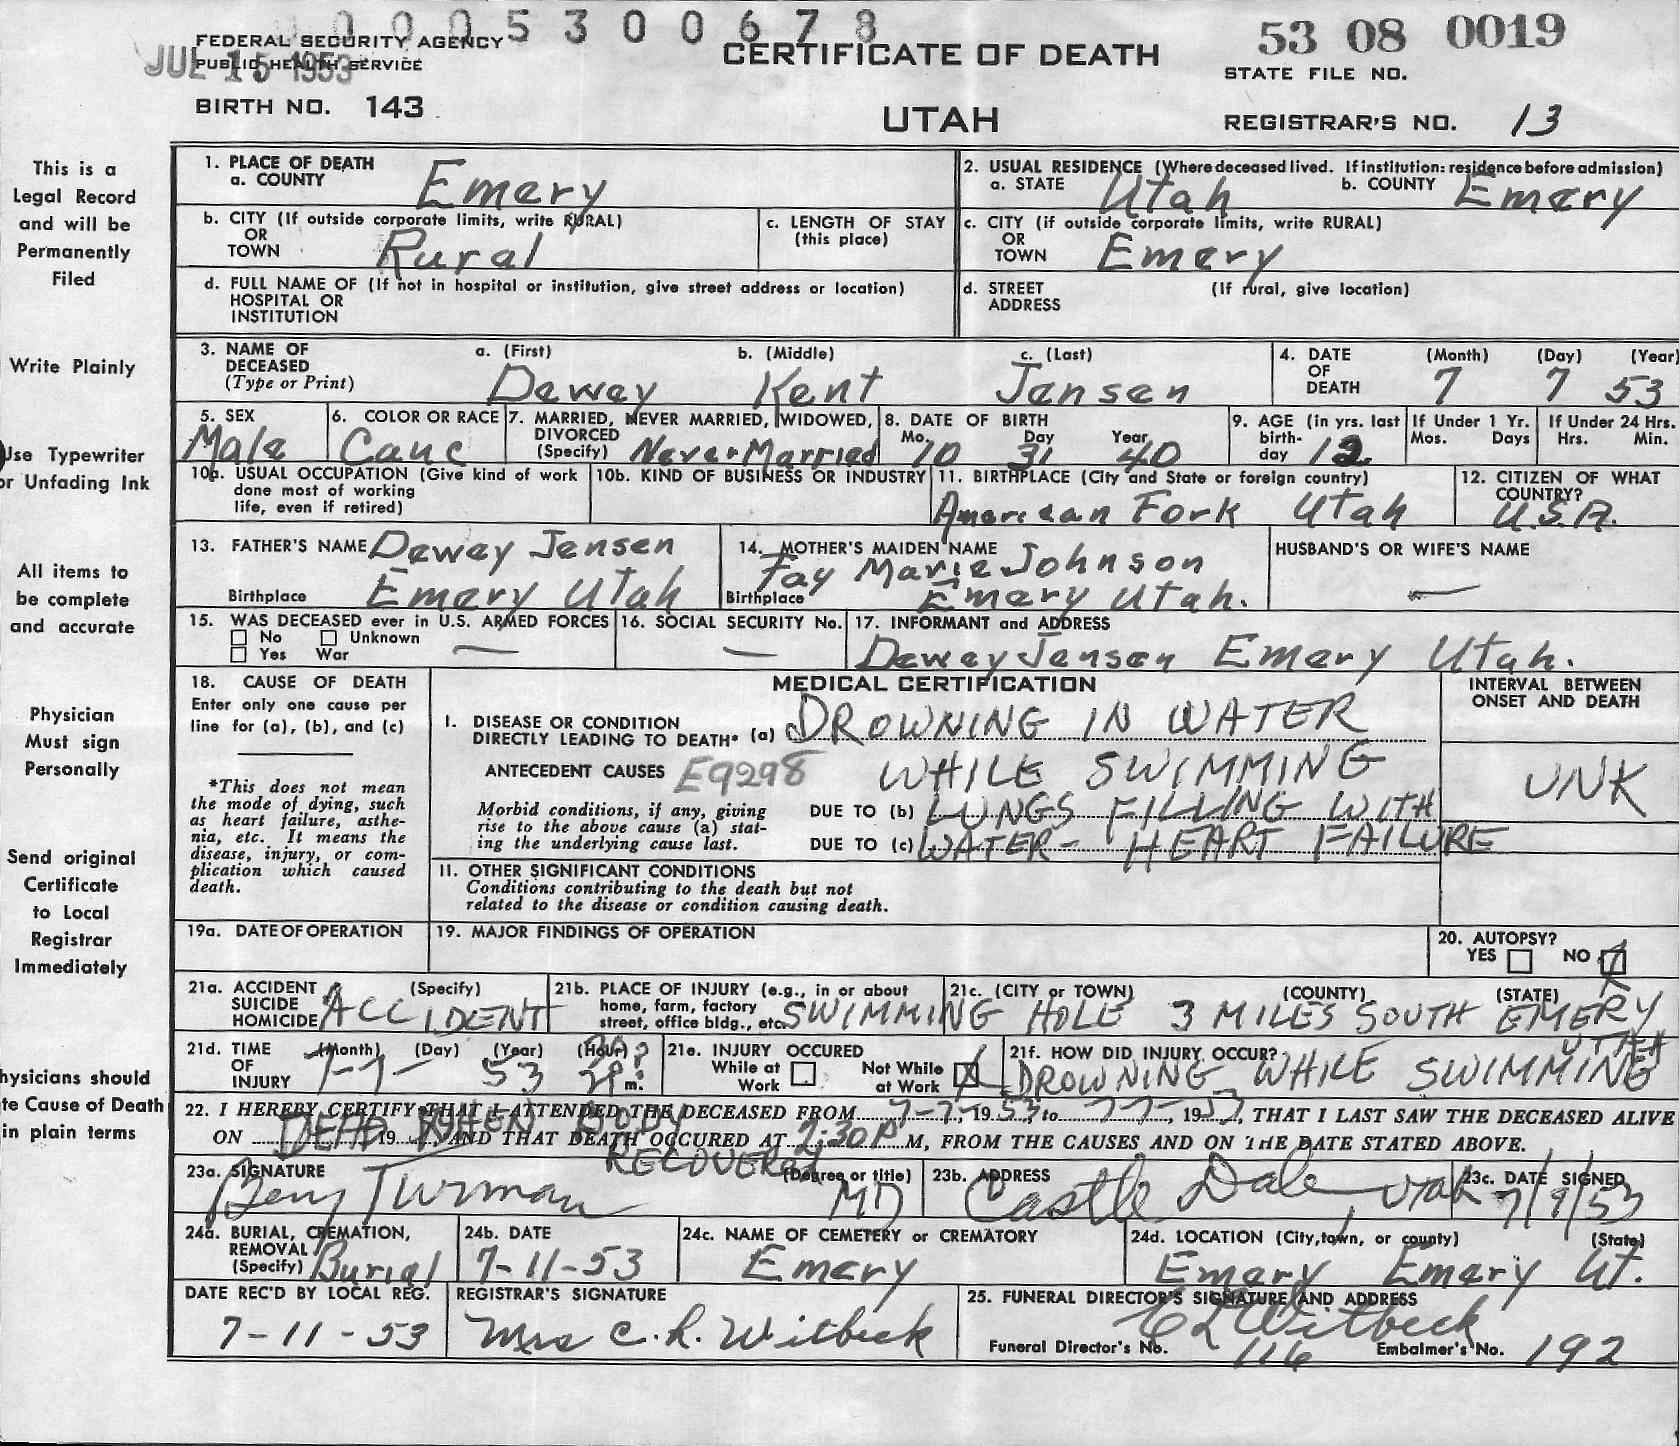 0005300678
FEDERAL SECURITY AGENCY
PUBLIC HEALTH SERVICE
JUL 15 1953
CERTIFICATE OF DEATH
53 08 0019
STATE FILE NO.
BIRTH NO. 143
UTAH
REGISTRAR'S NO. 13
This is a
Legal Record
and will be
Permanently
Filed
Write Plainly
Use Typewriter
or Unfading Ink
All items to
be complete
and accurate
Physician
Must sign
Personally
Send original
Certificate
to Local
Registrar
Immediately
hysicians should
te Cause of Death
in plain terms
1. PLACE OF DEATH
a. COUNTY Emery
2. USUAL RESIDENCE (Where deceased lived. If institution: residence before admission)
a. STATE Utah b. COUNTY Emery
b. CITY (If outside corporate limits, write RURAL)
OR
TOWN Rural
c. LENGTH OF STAY
(this place)
c. CITY (if outside corporate limits, write RURAL)
OR
TOWN Emery
d. FULL NAME OF (If not in hospital or institution, give street address or location)
HOSPITAL OR
INSTITUTION
d. STREET (If rural, give location)
ADDRESS
3. NAME OF
DECEASED
(Type or Print)
a. (First) b. (Middle) c. (Last)
Dewey Kent Jensen
4. DATE
OF
DEATH
(Month) (Day) (Year)
7 7 53
5. SEX
Male
6. COLOR OR RACE
Cauc
7. MARRIED, NEVER MARRIED, WIDOWED,
DIVORCED
(Specify) Never Married
8. DATE OF BIRTH
Mo. Day Year
10 31 40
9. AGE (in yrs. last
birth-
day 12
If Under 1 Yr.
Mos. Days
If Under 24 Hrs.
Hrs. Min.
10a. USUAL OCCUPATION (Give kind of work
done most of working
life, even if retired)
10b. KIND OF BUSINESS OR INDUSTRY
11. BIRTHPLACE (City and State or foreign country)
American Fork Utah
12. CITIZEN OF WHAT
COUNTRY?
U.S.A.
13. FATHER'S NAME Dewey Jensen
Birthplace Emery Utah
14. MOTHER'S MAIDEN NAME
Fay Marie Johnson
Birthplace Emery Utah.
HUSBAND'S OR WIFE'S NAME
—
15. WAS DECEASED ever in U.S. ARMED FORCES
No Unknown
Yes War —
16. SOCIAL SECURITY No.
—
17. INFORMANT and ADDRESS
Dewey Jensen Emery Utah.
18. CAUSE OF DEATH
Enter only one cause per
line for (a), (b), and (c)
*This does not mean
the mode of dying, such
as heart failure, asthe-
nia, etc. It means the
disease, injury, or com-
plication which caused
death.
MEDICAL CERTIFICATION
INTERVAL BETWEEN
ONSET AND DEATH
UNK
I. DISEASE OR CONDITION
DIRECTLY LEADING TO DEATH* (a) DROWNING IN WATER
ANTECEDENT CAUSES E9298 WHILE SWIMMING
Morbid conditions, if any, giving
rise to the above cause (a) stat-
ing the underlying cause last.
DUE TO (b) LUNGS FILLING WITH
DUE TO (c) WATER- HEART FAILURE
11. OTHER SIGNIFICANT CONDITIONS
Conditions contributing to the death but not
related to the disease or condition causing death.
19a. DATE OF OPERATION
19. MAJOR FINDINGS OF OPERATION
20. AUTOPSY?
YES NO X
21a. ACCIDENT (Specify)
SUICIDE
HOMICIDE ACCIDENT
21b. PLACE OF INJURY (e.g., in or about
home, farm, factory
street, office bldg., etc. SWIMMING HOLE
21c. (CITY or TOWN) (COUNTY) (STATE)
3 MILES SOUTH EMERY
UTAH
21d. TIME
OF
INJURY
(Month) (Day) (Year) (Hour)
7-7- 53 m.
21e. INJURY OCCURED
While at
Work
Not While
at Work X
21f. HOW DID INJURY OCCUR?
DROWNING WHILE SWIMMING
22. I HEREBY CERTIFY THAT I ATTENDED THE DECEASED FROM 7-7-, 1953 to 7-7-, 1953, THAT I LAST SAW THE DECEASED ALIVE
ON DEAD WHEN BODY 19 AND THAT DEATH OCCURED AT 2:30 P M, FROM THE CAUSES AND ON THE DATE STATED ABOVE.
RECOVERED
23a. SIGNATURE (Degree or title)
Turman MD
23b. ADDRESS
Castle Dale, Utah
23c. DATE SIGNED
7/9/53
24a. BURIAL, CREMATION,
REMOVAL
(Specify) Burial
24b. DATE
7-11-53
24c. NAME OF CEMETERY or CREMATORY
Emery
24d. LOCATION (City, town, or county) (State)
Emery Emery Ut.
DATE REC'D BY LOCAL REG.
7-11-53
REGISTRAR'S SIGNATURE
Mrs C. L. Witbeck
25. FUNERAL DIRECTOR'S SIGNATURE AND ADDRESS
C L Witbeck
Funeral Director's No. 116 Embalmer's No. 192